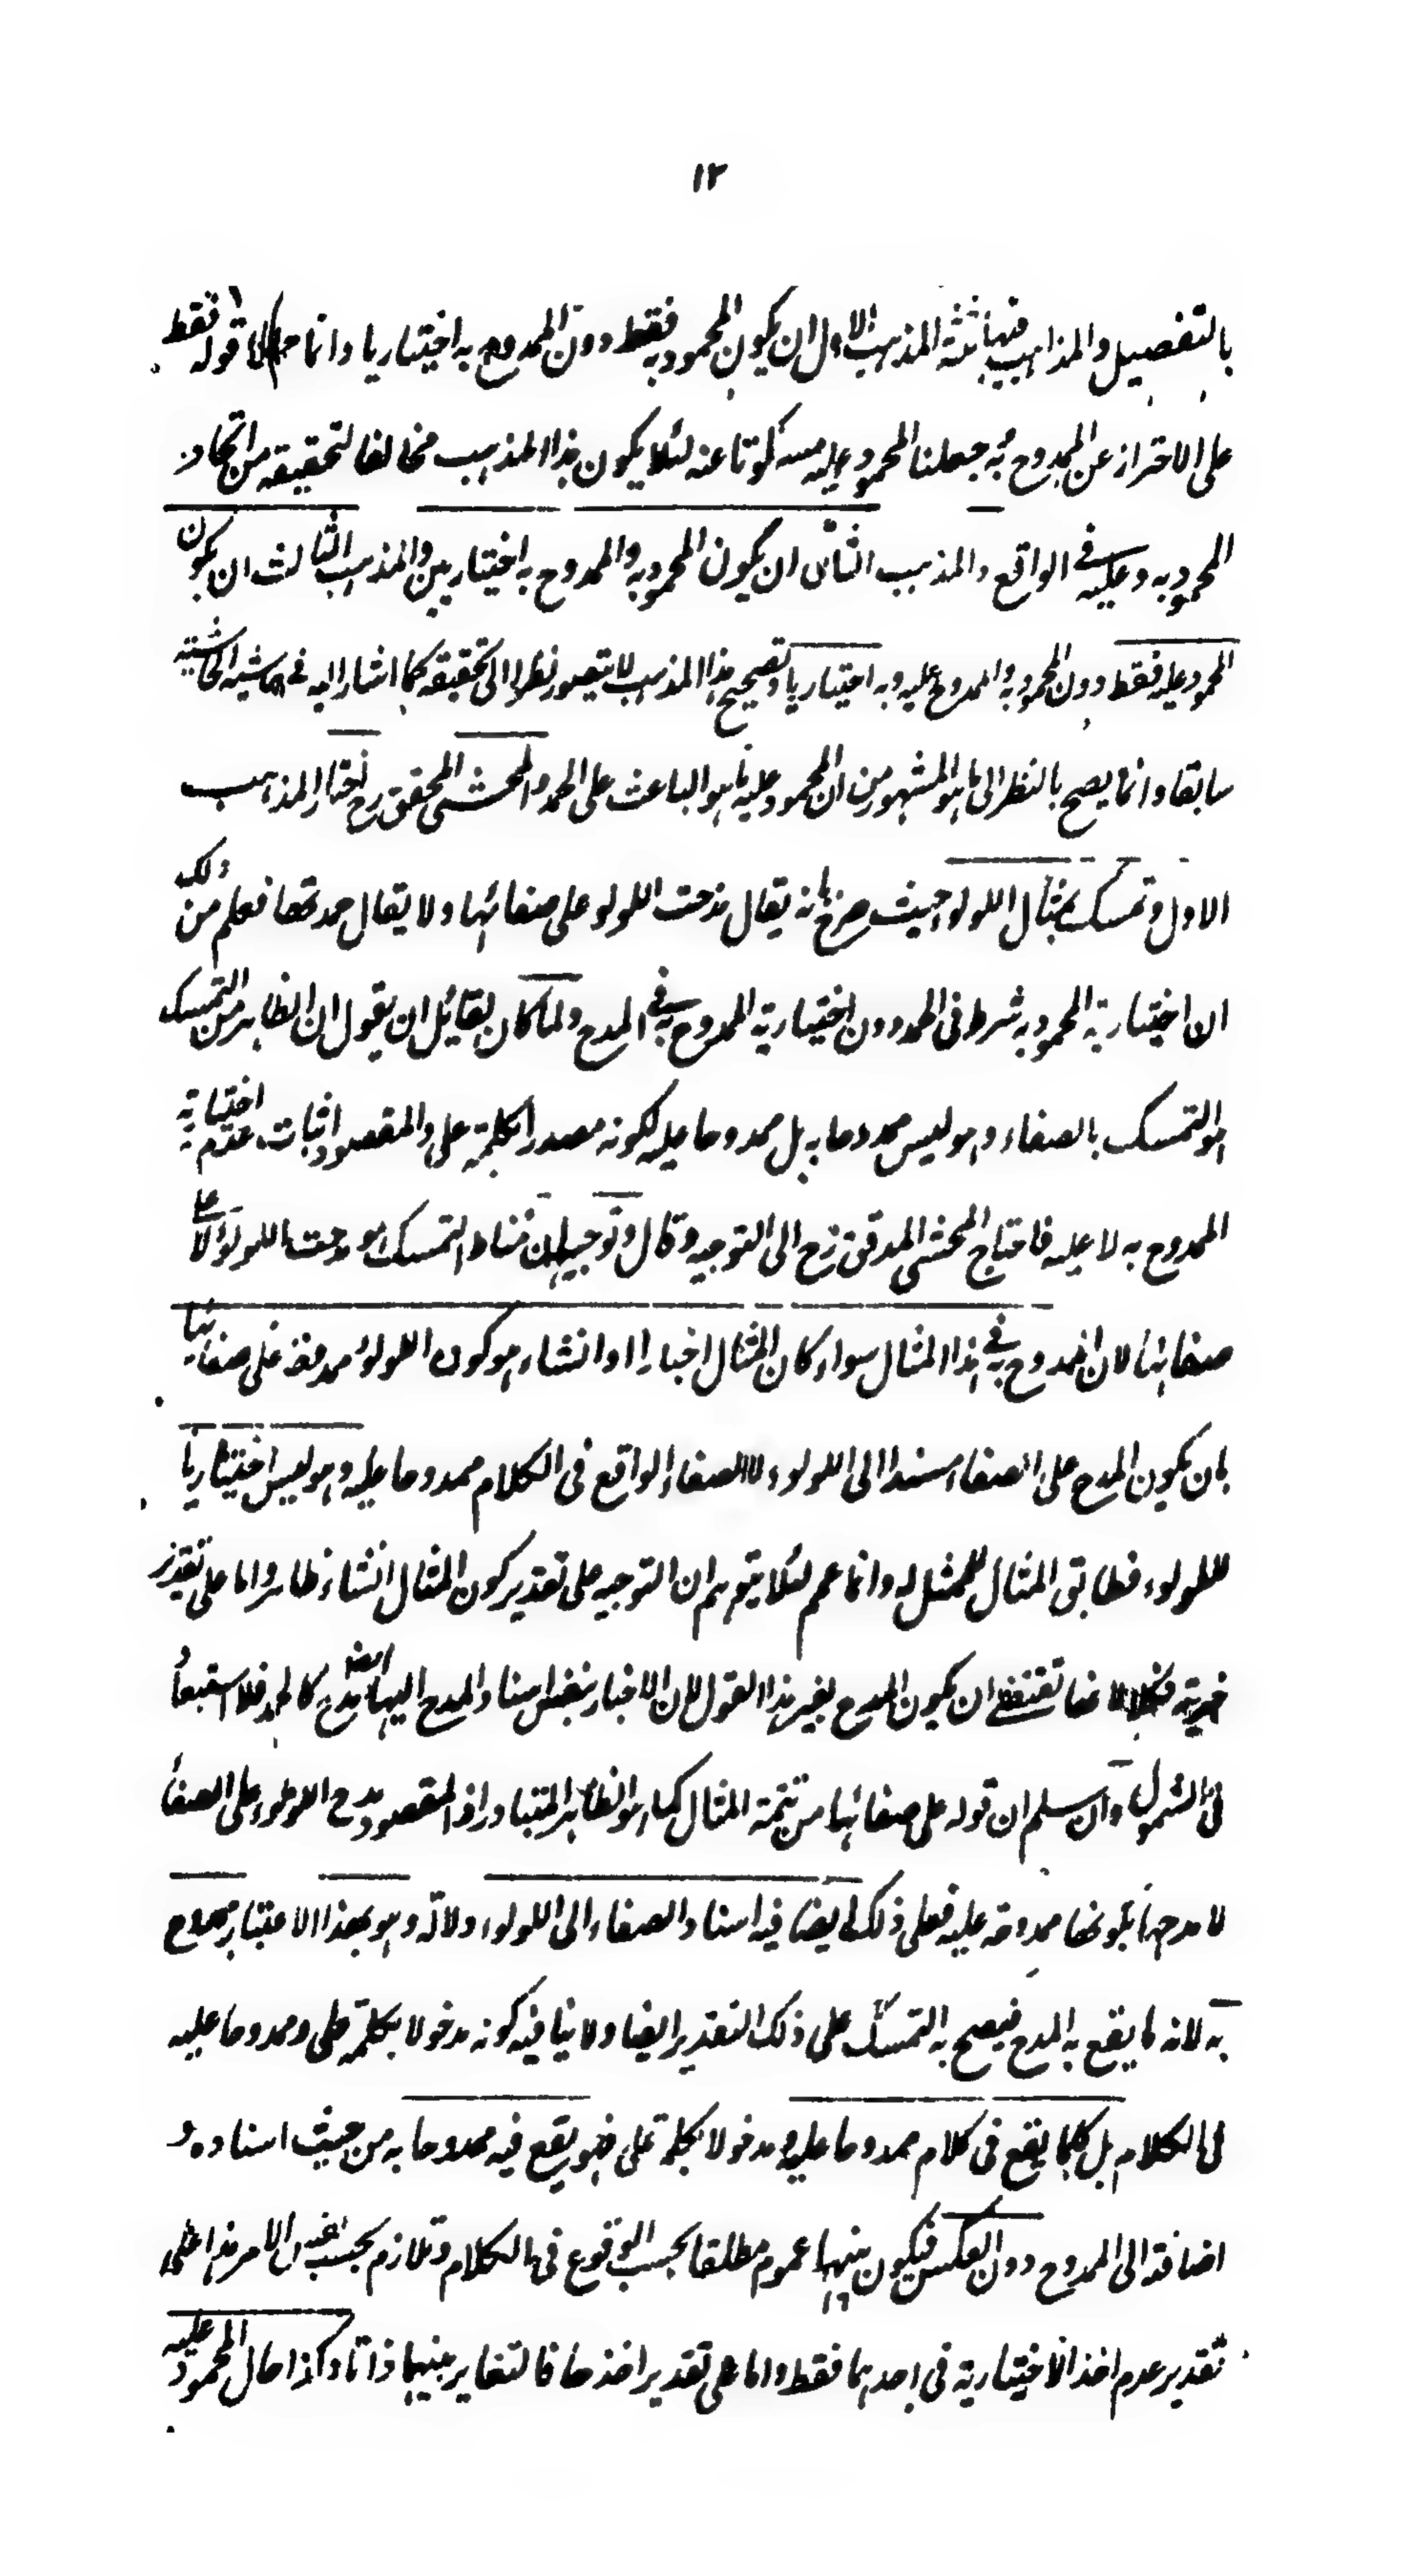 ١٢
بالتفصيل والمذاهب فيها ثلثة المذهب الاول ان يكون المحمود به فقط دون الممدوح به اختياريا وانما قوله فقط
على الاحتراز عن الممدوح به جعلنا المحمود عليه مسكوتا عنه لئلا يكون هذا المذهب مخالفا لتحقيقه من اتحاد
المحمود به وعليه في الواقع والمذهب الثاني ان يكون المحمود به والممدوح به اختياريين والمذهب الثالث ان يكون
المحمود عليه فقط دون المحمود به والممدوح عليه وبه اختياريا وتصحيح هذا المذهب لا يتصور نظرا الى تحقيقه كما اشار اليه في حاشية الحاشية
سابقا وانما يصح بالنظر الى ما هو المشهور من ان المحمود عليه ما هو الباعث على الحمد والمحشى المحقق رح اختار المذهب
الاول وتمسك بمثال اللولو حيث صرح بانه يقال مدحت اللولو على صفائها ولا يقال حمدتها فعلم من ذلك
ان اختيارية المحمود به شرط فى الحمد دون اختيارية الممدوح به في المدح ولما كان لقائل ان يقول ان الظاهر من التمسك
هو التمسك بالصفاء وهو ليس ممدوحا به بل ممدوحا عليه لكونه مصدرا بكلمة على والمقصود اثبات عدم اختيارية
الممدوح به لا عليه فاحتاج المحشى المدقق رح الى التوجيه وقال وتوجيهه ان مناط التمسك هو مدحت اللولو لا على
صفائها لان الممدوح به في هذا المثال سواء كان المثال اخبارا او انشاء هو كون اللولو ممدوحة على صفائها
بان يكون المدح على الصفاء مسندا الى اللولوء لا الصفاء الواقع فى الكلام ممدوحا عليه وهو ليس اختياريا
للولوء فطابق المثال للممثل له وانما عمم لئلا يتوهم ان التوجيه على تقدير كون المثال انشاء ظاهر واما على تقدير
خبريته فلا ان يكون المدح بغير هذا القول لان الاخبار بنفس اسناد المدح اليها ايضا مدح كالحمد فلا استبعاد
فى الشمول وان سلم ان قوله على صفائها من تتمة المثال كما هو الظاهر المتبادر اذ المقصود مدح اللولوء على الصفاء
لا مدحها بكونها ممدوحة عليه فعلى ذلك ايضا فيه اسناد الصفاء الى اللولوء دلالة وهو بهذا الاعتبار ممدوح
به لانه ما يقع به المدح فيصح به التمسك على ذلك التقدير ايضا ولا ينافيه كونه مدخولا بكلمة على وممدوحا عليه
فى الكلام بل كلما يقع فى كلام ممدوحا عليه ومدخولا بكلمة على فهو يقع فيه ممدوحا به من حيث اسناده و
اضافته الى الممدوح دون العكس فيكون بينهما عموم مطلقا بحسب الوقوع فى الكلام وتلازم بحسب نفس الامر هذا على
تقدير عدم اخذ الاختيارية فى احدهما فقط واما على تقدير اخذها فالتغاير بينهما ذاتا وكذا حال المحمود عليه